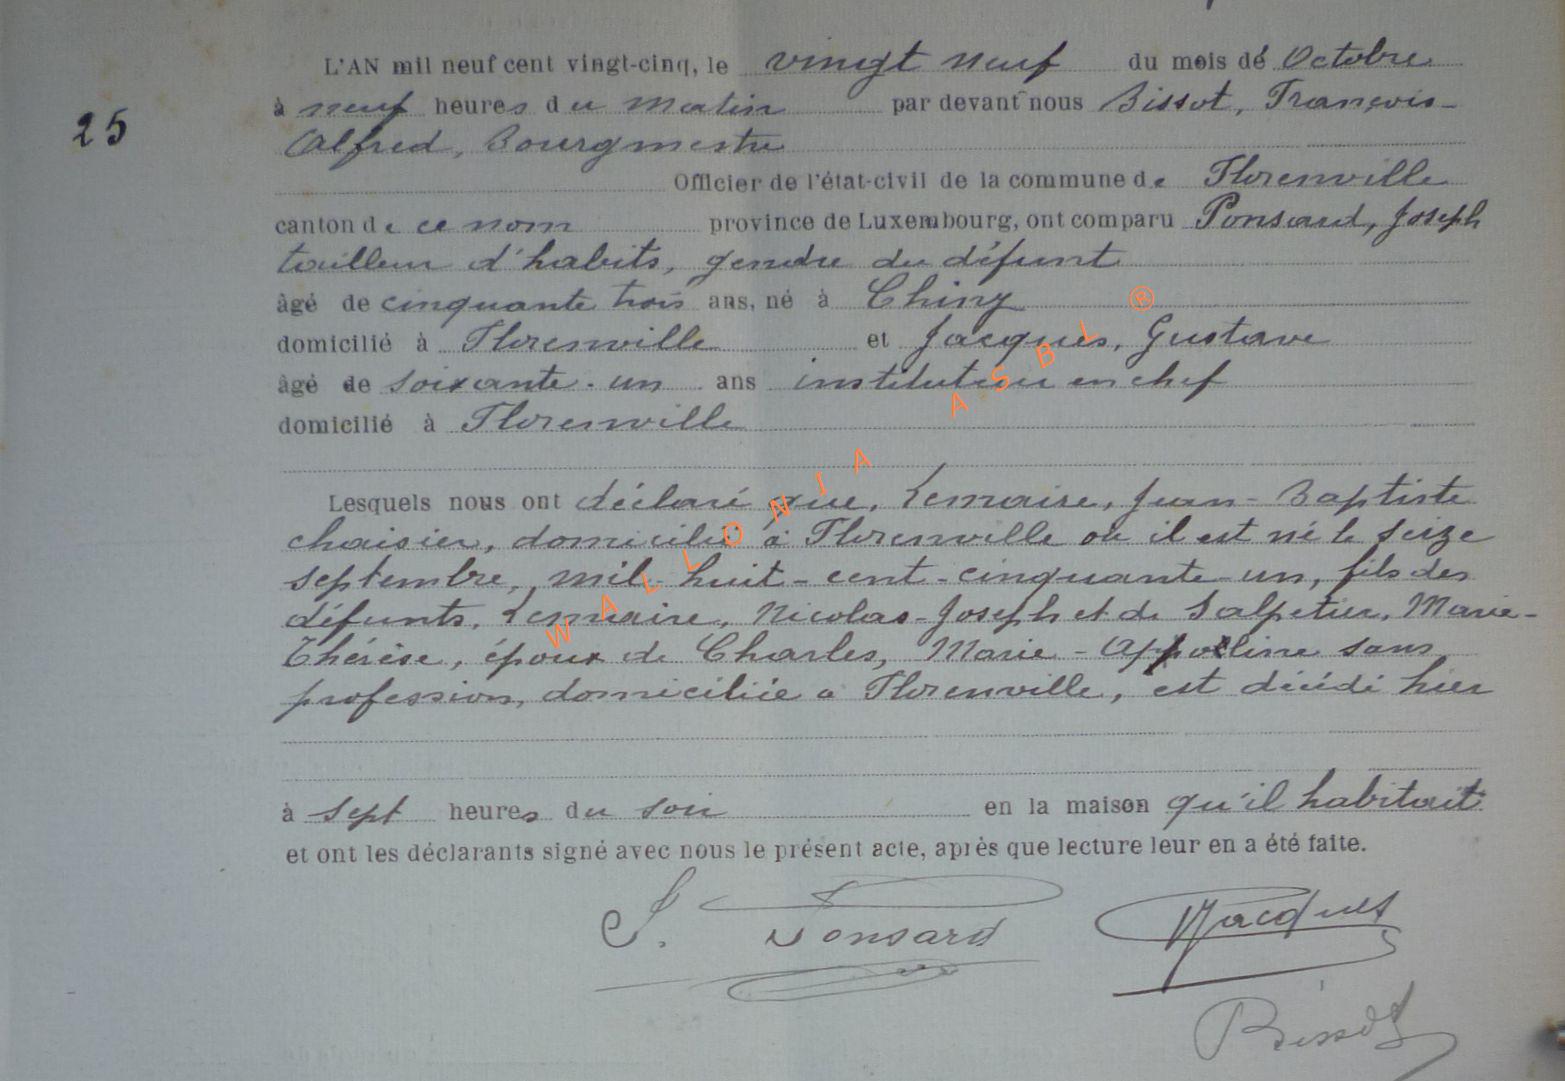 L'AN mil neuf cent vingt-cinq, le vingt neuf du mois de Octobre
à neuf heures du matin par devant nous Bissot, François-
25
Alfred, Bourgmestre
Officier de l'état-civil de la commune de Florenville
canton de ce nom province de Luxembourg, ont comparu Ponsard, Joseph
tailleur d'habits, gendre du défunt
âgé de cinquante trois ans, né à Chiny
domicilié à Florenville et Jacques, Gustave
âgé de soixante-un ans instituteur en chef
domicilié à Florenville
Lesquels nous ont déclaré que, Lemaire, Jean-Baptiste
chaisier, domicilié à Florenville où il est né le seize
septembre, mil-huit-cent-cinquante-un, fils des
défunts, Lemaire, Nicolas-Joseph et de Salpetier, Marie-
Thérèse, époux de Charles, Marie-Appoline sans
profession, domiciliée à Florenville, est décédé hier
à sept heures du soir en la maison qu'il habitait
et ont les déclarants signé avec nous le présent acte, après que lecture leur en a été faite.
J. Ponsard Jacques
Bissot
WALLONIA ASBL ®